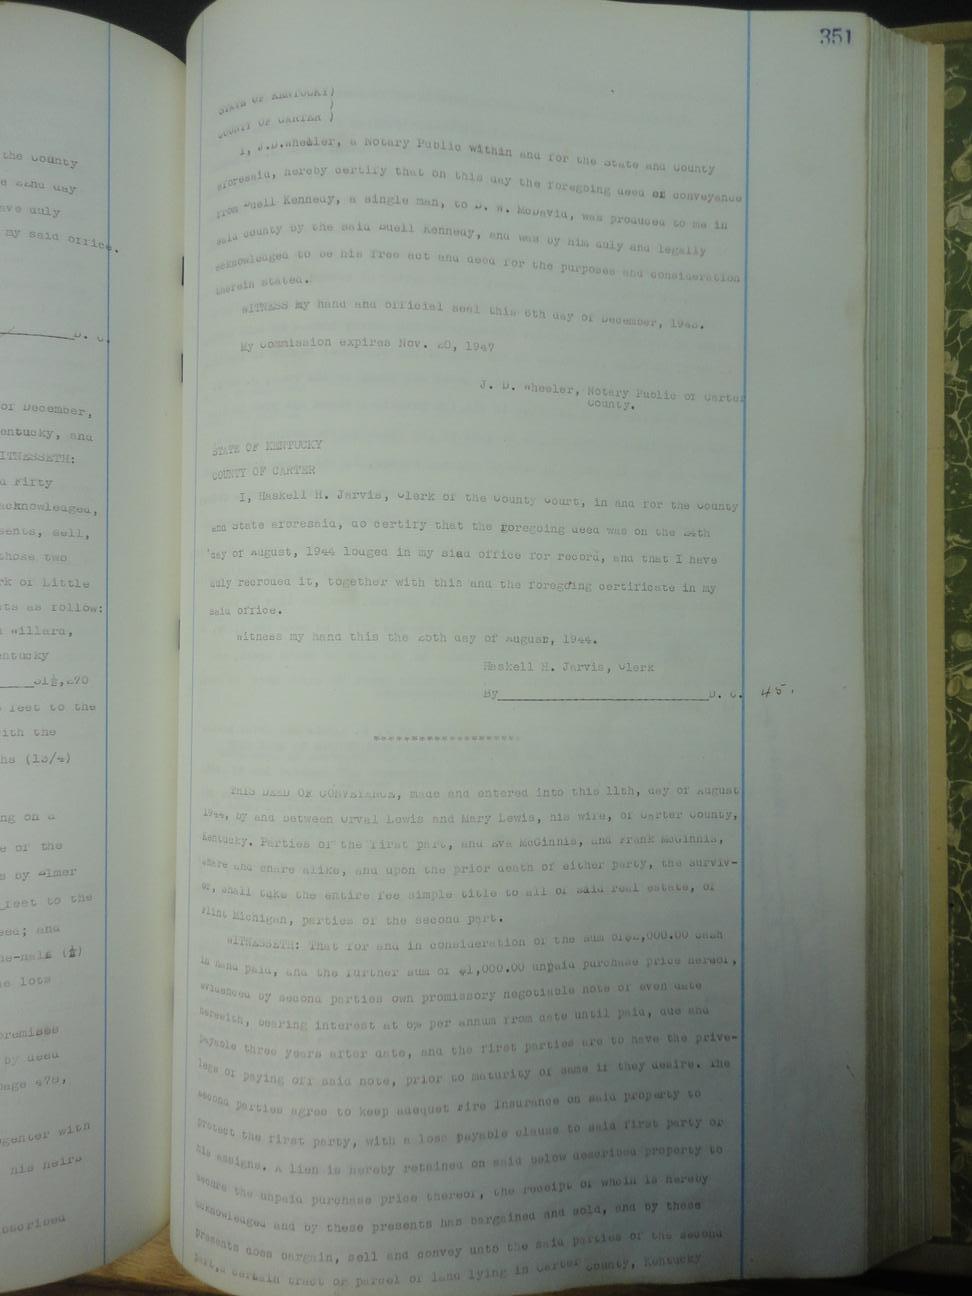 351
the County
day
ave duly
my said office.
D. C.
of December,
entucky, and
ITNESSETH:
d Fifty
acknowledged,
sents, sell,
those two
rk of Little
ts as follow:
Willard,
entucky
feet to the
ith the
ng on a
e of the
s by Elmer
feet to the
eed; and
ne-half (½)
e lots
premises
by deed
page 478,
ogether with
his heirs
STATE OF KENTUCKY)
)
COUNTY OF CARTER )
I, J.D.Wheeler, a Notary Public within and for the State and County
aforesaid, hereby certify that on this day the foregoing deed of conveyance
from Buell Kennedy, a single man, to D. W. McDavid, was produced to me in
said county by the said Buell Kennedy, and was by him duly and legally
acknowledged to be his free act and deed for the purposes and consideration
therein stated.
WITNESS my hand and official seal this 6th day of December,
My Commission expires Nov. 20, 1947
J. D. Wheeler, Notary Public of Carter
County.
STATE OF KENTUCKY
COUNTY OF CARTER
I, Haskell H. Jarvis, Clerk of the County Court, in and for the County
and State aforesaid, do certify that the foregoing deed was on the 24th
day of August, 1944 lodged in my siad office for record, and that I have
duly recroded it, together with this and the foregoing certificate in my
said office.
Witness my hand this the day of August, 1944.
Haskell H. Jarvis, Clerk
By D. C. 45.
********************
THIS DEED OF CONVEYANCE, made and entered into this 11th, day of August
1944, by and between Orval Lewis and Mary Lewis, his wife, of Carter County,
Kentucky. Parties of the first part, and Eva McGinnis, and Frank McGinnis,
share and share alike, and upon the prior death of either party, the surviv-
or, shall take the entire fee simple title to all of said real estate, of
Flint Michigan, parties of the second part.
WITNESSETH: That for and in consideration of the sum of $2,000.00 cash
in hand paid, and the further sum of $1,000.00 unpaid purchase price hereof,
evidenced by second parties own promissory negotiable note of even date
herewith, bearing interest at 6% per annum from date until paid, due and
payable three years after date, and the first parties are to have the prive-
lege of paying off said note, prior to maturity of same if they desire. The
second parties agree to keep adequet Fire Insurance on said property to
protect the first party, with a loss payable clause to said first party or
his assigns. A lien is hereby retained on said below described property to
secure the unpaid purchase price thereof, the receipt of whoin is hereby
acknowledged and by these presents has bargained and sold, and by these
presents does bargain, sell and convey unto the said parties of the second
part,a certain tract or parcel of land lying in Carter County, Kentucky